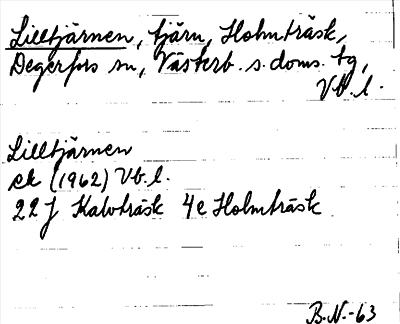 Lilltjärnen, tjärn, Holmträsk,
Degerfors sn, Västerb. s. doms. tg,
Vb. l.
Lilltjärnen
ek (1962) Vb. l.
22 J Kalvträsk 4e Holmträsk
B.N.-63